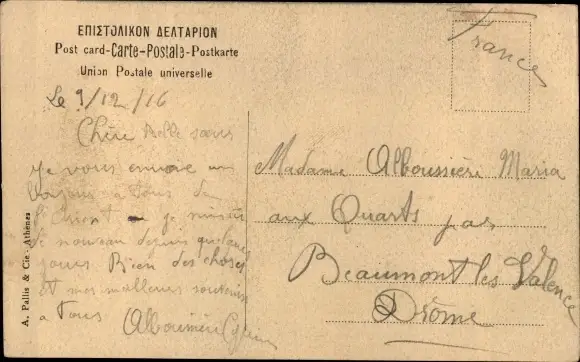 ΕΠΙΣΤΟΛΙΚΟΝ ΔΕΛΤΑΡΙΟΝ
Post card-Carte-Postale-Postkarte
Union Postale universelle
France
Le 9/12/16
Chère Belle sœur
je vous envoie un
a tous de
l'Orient je
de nouveau depuis quelques
jours Bien des choses
et mes meilleurs souvenirs
a Tous
Alboussière
Madame Alboussière Maria
aux Quarts par
Beaumont les Valence
Drôme
A. Pallis & Cie. Athènes